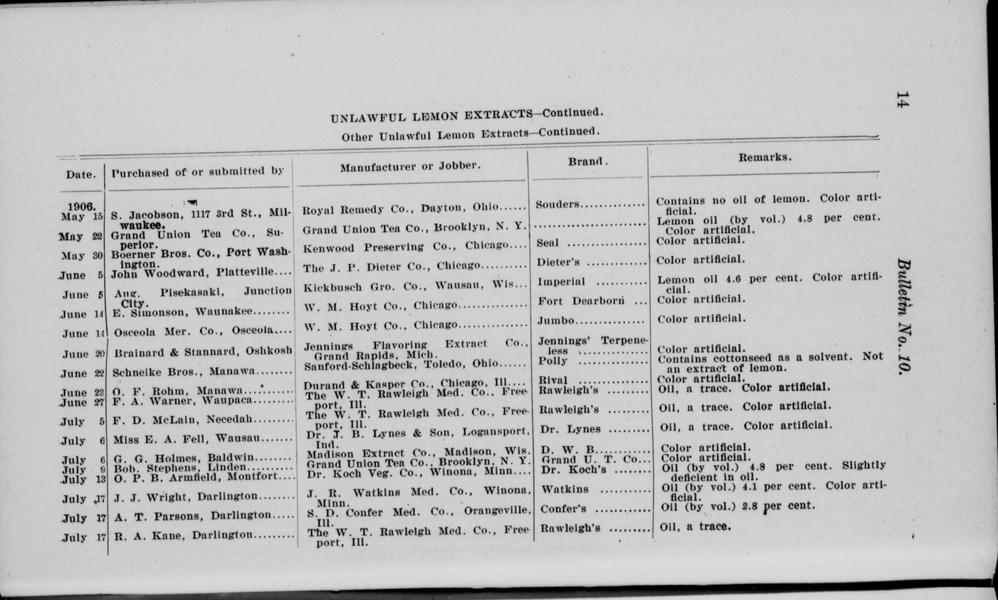 14
UNLAWFUL LEMON EXTRACTS—Continued.
Other Unlawful Lemon Extracts—Continued.
Date. Purchased of or submitted by Manufacturer or Jobber. Brand. Remarks.
1906.
May 15 S. Jacobson, 1117 3rd St., Mil- Royal Remedy Co., Dayton, Ohio...... Souders.............. Contains no oil of lemon. Color arti-
waukee. ficial.
May 22 Grand Union Tea Co., Su- Grand Union Tea Co., Brooklyn, N. Y. ........................ Lemon oil (by vol.) 4.8 per cent.
perior. Color artificial.
May 30 Boerner Bros. Co., Port Wash- Kenwood Preserving Co., Chicago.... Seal .............. Color artificial.
ington.
June 5 John Woodward, Platteville.... The J. P. Dieter Co., Chicago.......... Dieter's ............ Color artificial.
June 5 Aug. Pisekasaki, Junction Kickbusch Gro. Co., Wausau, Wis... Imperial ............ Lemon oil 4.6 per cent. Color artifi-
City. cial.
June 14 E. Simonson, Waunakee........ W. M. Hoyt Co., Chicago.............. Fort Dearborn ... Color artificial.
June 14 Osceola Mer. Co., Osceola.... W. M. Hoyt Co., Chicago.............. Jumbo.............. Color artificial.
June 20 Brainard & Stannard, Oshkosh Jennings Flavoring Extract Co., Jennings' Terpene-
Grand Rapids, Mich. less .............. Color artificial.
June 22 Schneike Bros., Manawa........ Sanford-Schlagbeck, Toledo, Ohio...... Polly .............. Contains cottonseed as a solvent. Not
an extract of lemon.
June 23 O. F. Rohm, Manawa.......... Durand & Kasper Co., Chicago, Ill.... Rival .............. Color artificial.
June 27 F. A. Warner, Waupaca.......... The W. T. Rawleigh Med. Co., Free Rawleigh's ......... Oil, a trace. Color artificial.
port, Ill.
July 5 F. D. McLain, Necedah........ The W. T. Rawleigh Med. Co., Free- Rawleigh's ......... Oil, a trace. Color artificial.
port, Ill.
July 6 Miss E. A. Fell, Wausau....... Dr. J. B. Lynes & Son, Logansport, Dr. Lynes ......... Oil, a trace. Color artificial.
Ind.
July 6 G. G. Holmes, Baldwin........ Madison Extract Co., Madison, Wis. D. W. B........... Color artificial.
July 9 Bob. Stephens, Linden.......... Grand Union Tea Co., Brooklyn, N. Y. Grand U. T. Co... Color artificial.
July 13 O. P. B. Armfield, Montfort.... Dr. Koch Veg. Co., Winona, Minn.... Dr. Koch's ........ Oil (by vol.) 4.8 per cent. Slightly
deficient in oil.
July 17 J. J. Wright, Darlington........ J. R. Watkins Med. Co., Winona, Watkins ........... Oil (by vol.) 4.1 per cent. Color arti-
Minn. ficial.
July 17 A. T. Parsons, Darlington..... S. D. Confer Med. Co., Orangeville, Confer's ............ Oil (by vol.) 2.8 per cent.
Ill.
July 17 R. A. Kane, Darlington......... The W. T. Rawleigh Med. Co., Free Rawleigh's ......... Oil, a trace.
port, Ill.
Bulletin No. 10.